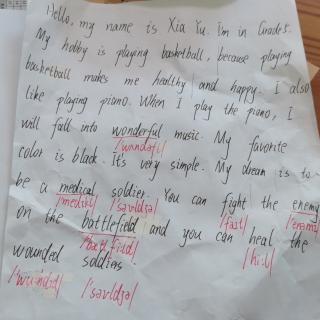 Hello, my name is Xia Yu. I'm in Grade 5.
My hobby is playing basketball, because playing
basketball makes me healthy and happy. I also
like playing piano. When I play the piano, I
will fall into wonderful music. My favorite
color is black. It's very simple. My dream is to
be a medical soldier. You can fight the enemy
on the battlefield and you can heal the
/hi:l/
wounded soldiers